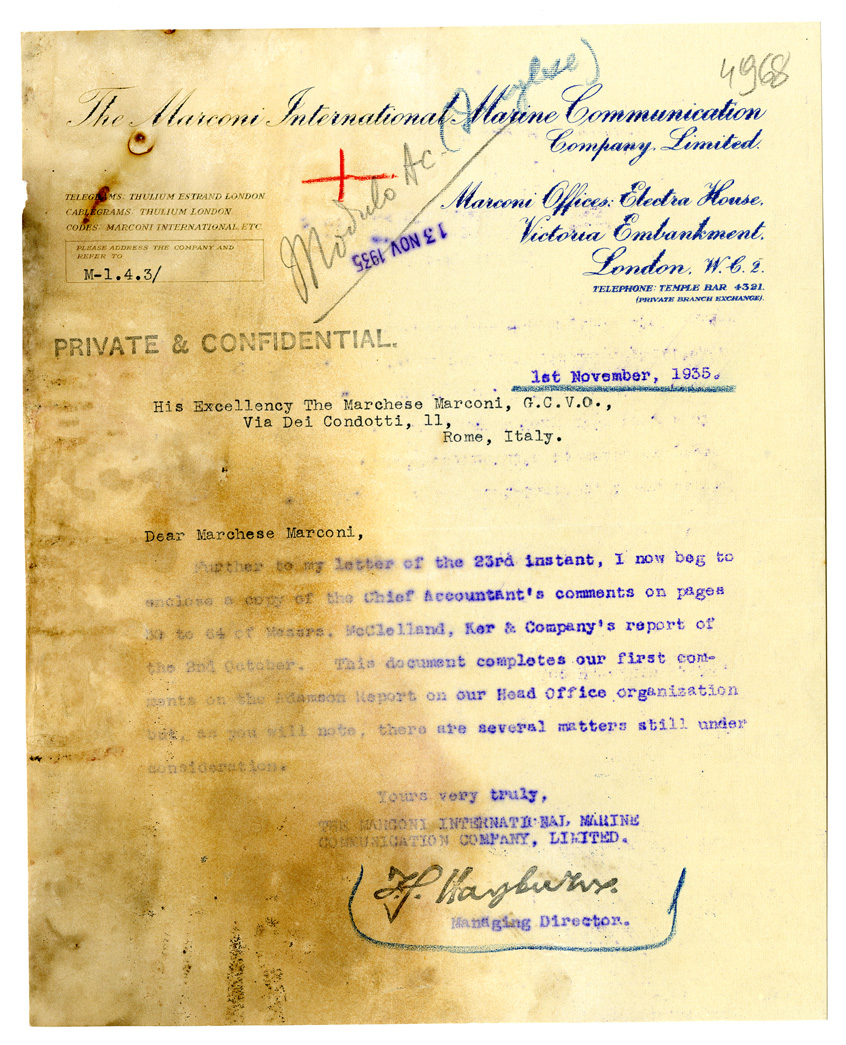 4968
The Marconi International Marine Communication
Company, Limited.
TELEGRAMS: THULIUM ESTRAND LONDON
CABLEGRAMS: THULIUM LONDON
CODES: MARCONI INTERNATIONAL, ETC.
PLEASE ADDRESS THE COMPANY AND
REFER TO
M-1.4.3/
Modulo Ac.
13 NOV 1935
Marconi Offices: Electra House,
Victoria Embankment,
London, W.C.2.
TELEPHONE: TEMPLE BAR 4321.
(PRIVATE BRANCH EXCHANGE).
PRIVATE & CONFIDENTIAL.
1st November, 1935.
His Excellency The Marchese Marconi, G.C.V.O.,
Via Dei Condotti, 11,
Rome, Italy.
Dear Marchese Marconi,
Further to my letter of the 23rd instant, I now beg to
enclose a copy of the Chief Accountant's comments on pages
to 64 of Messrs. McClelland, Ker & Company's report of
the 2nd October. This document completes our first com-
ments on the Adamson Report on our Head Office organization
but, as you will note, there are several matters still under
consideration.
Yours very truly,
THE MARCONI INTERNATIONAL MARINE
COMMUNICATION COMPANY, LIMITED.
Managing Director.